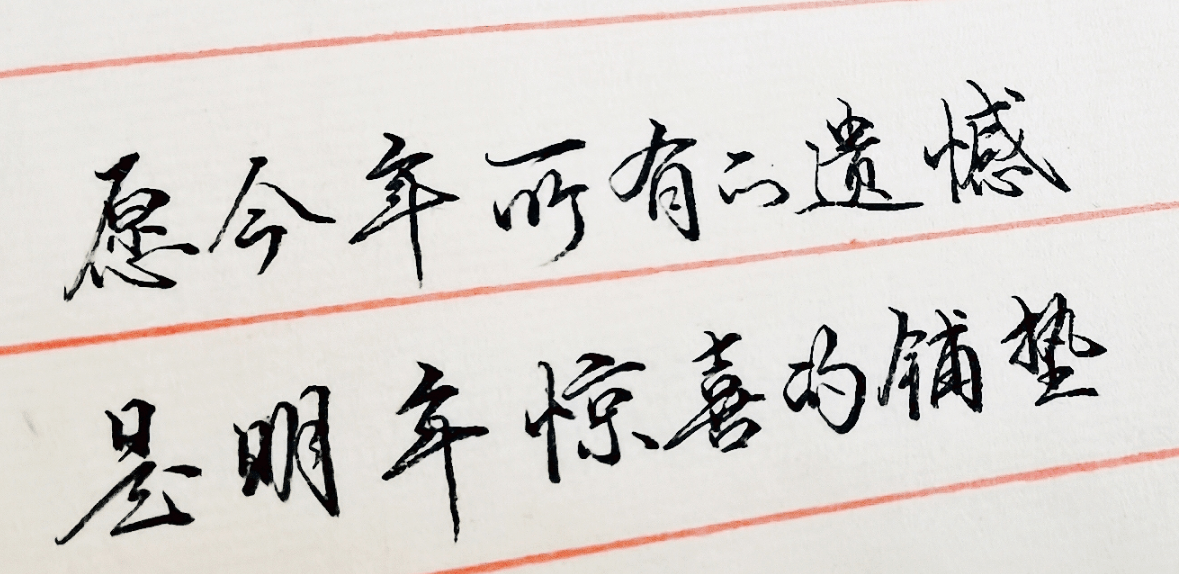 愿今年所有的遗憾
是明年惊喜的铺垫